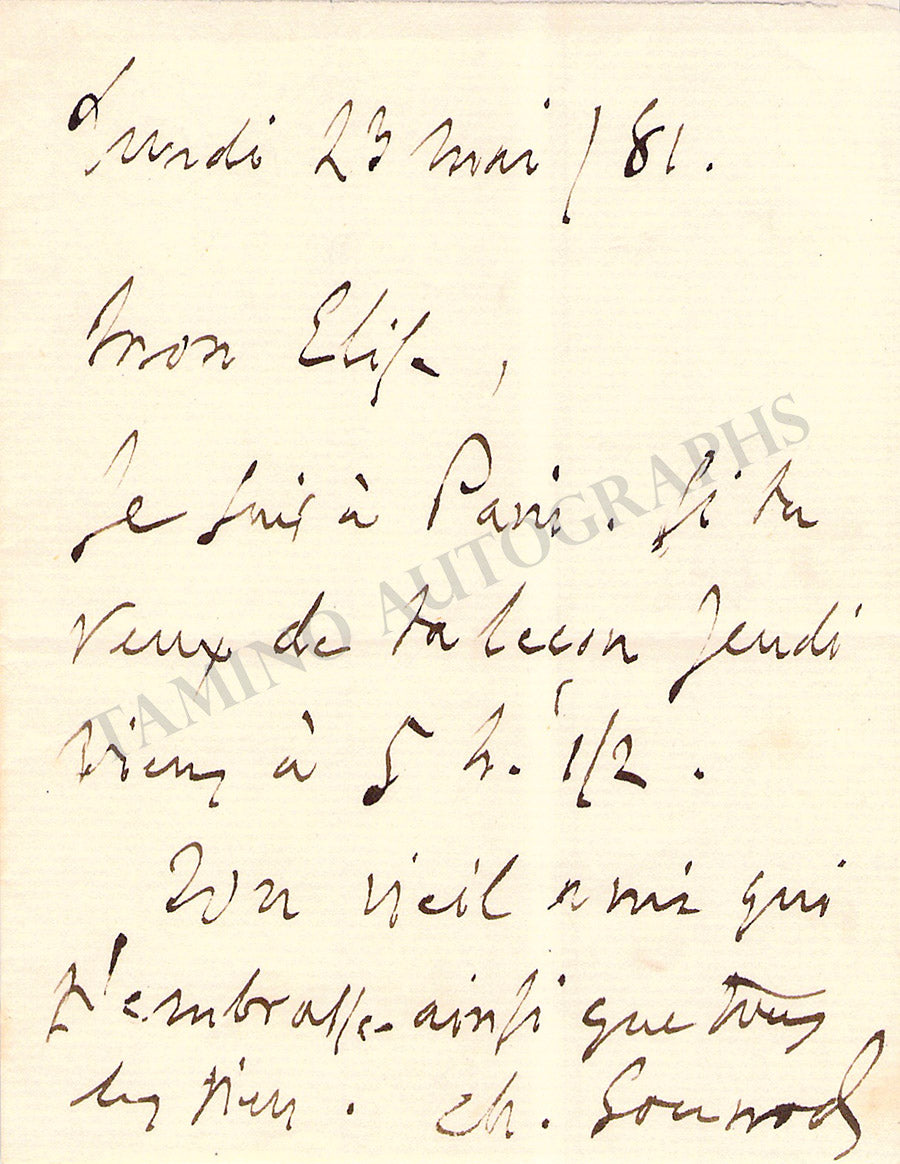 Lundi 23 mai / 81.
Mon Elise,
Je suis à Paris. Si ta
veux de ta leçon Jeudi
viens à 5 h. 1/2.
Ton vieil ami qui
t'embrasse ainsi que tous
les tiens. Ch. Gounod
TAMINO AUTOGRAPHS